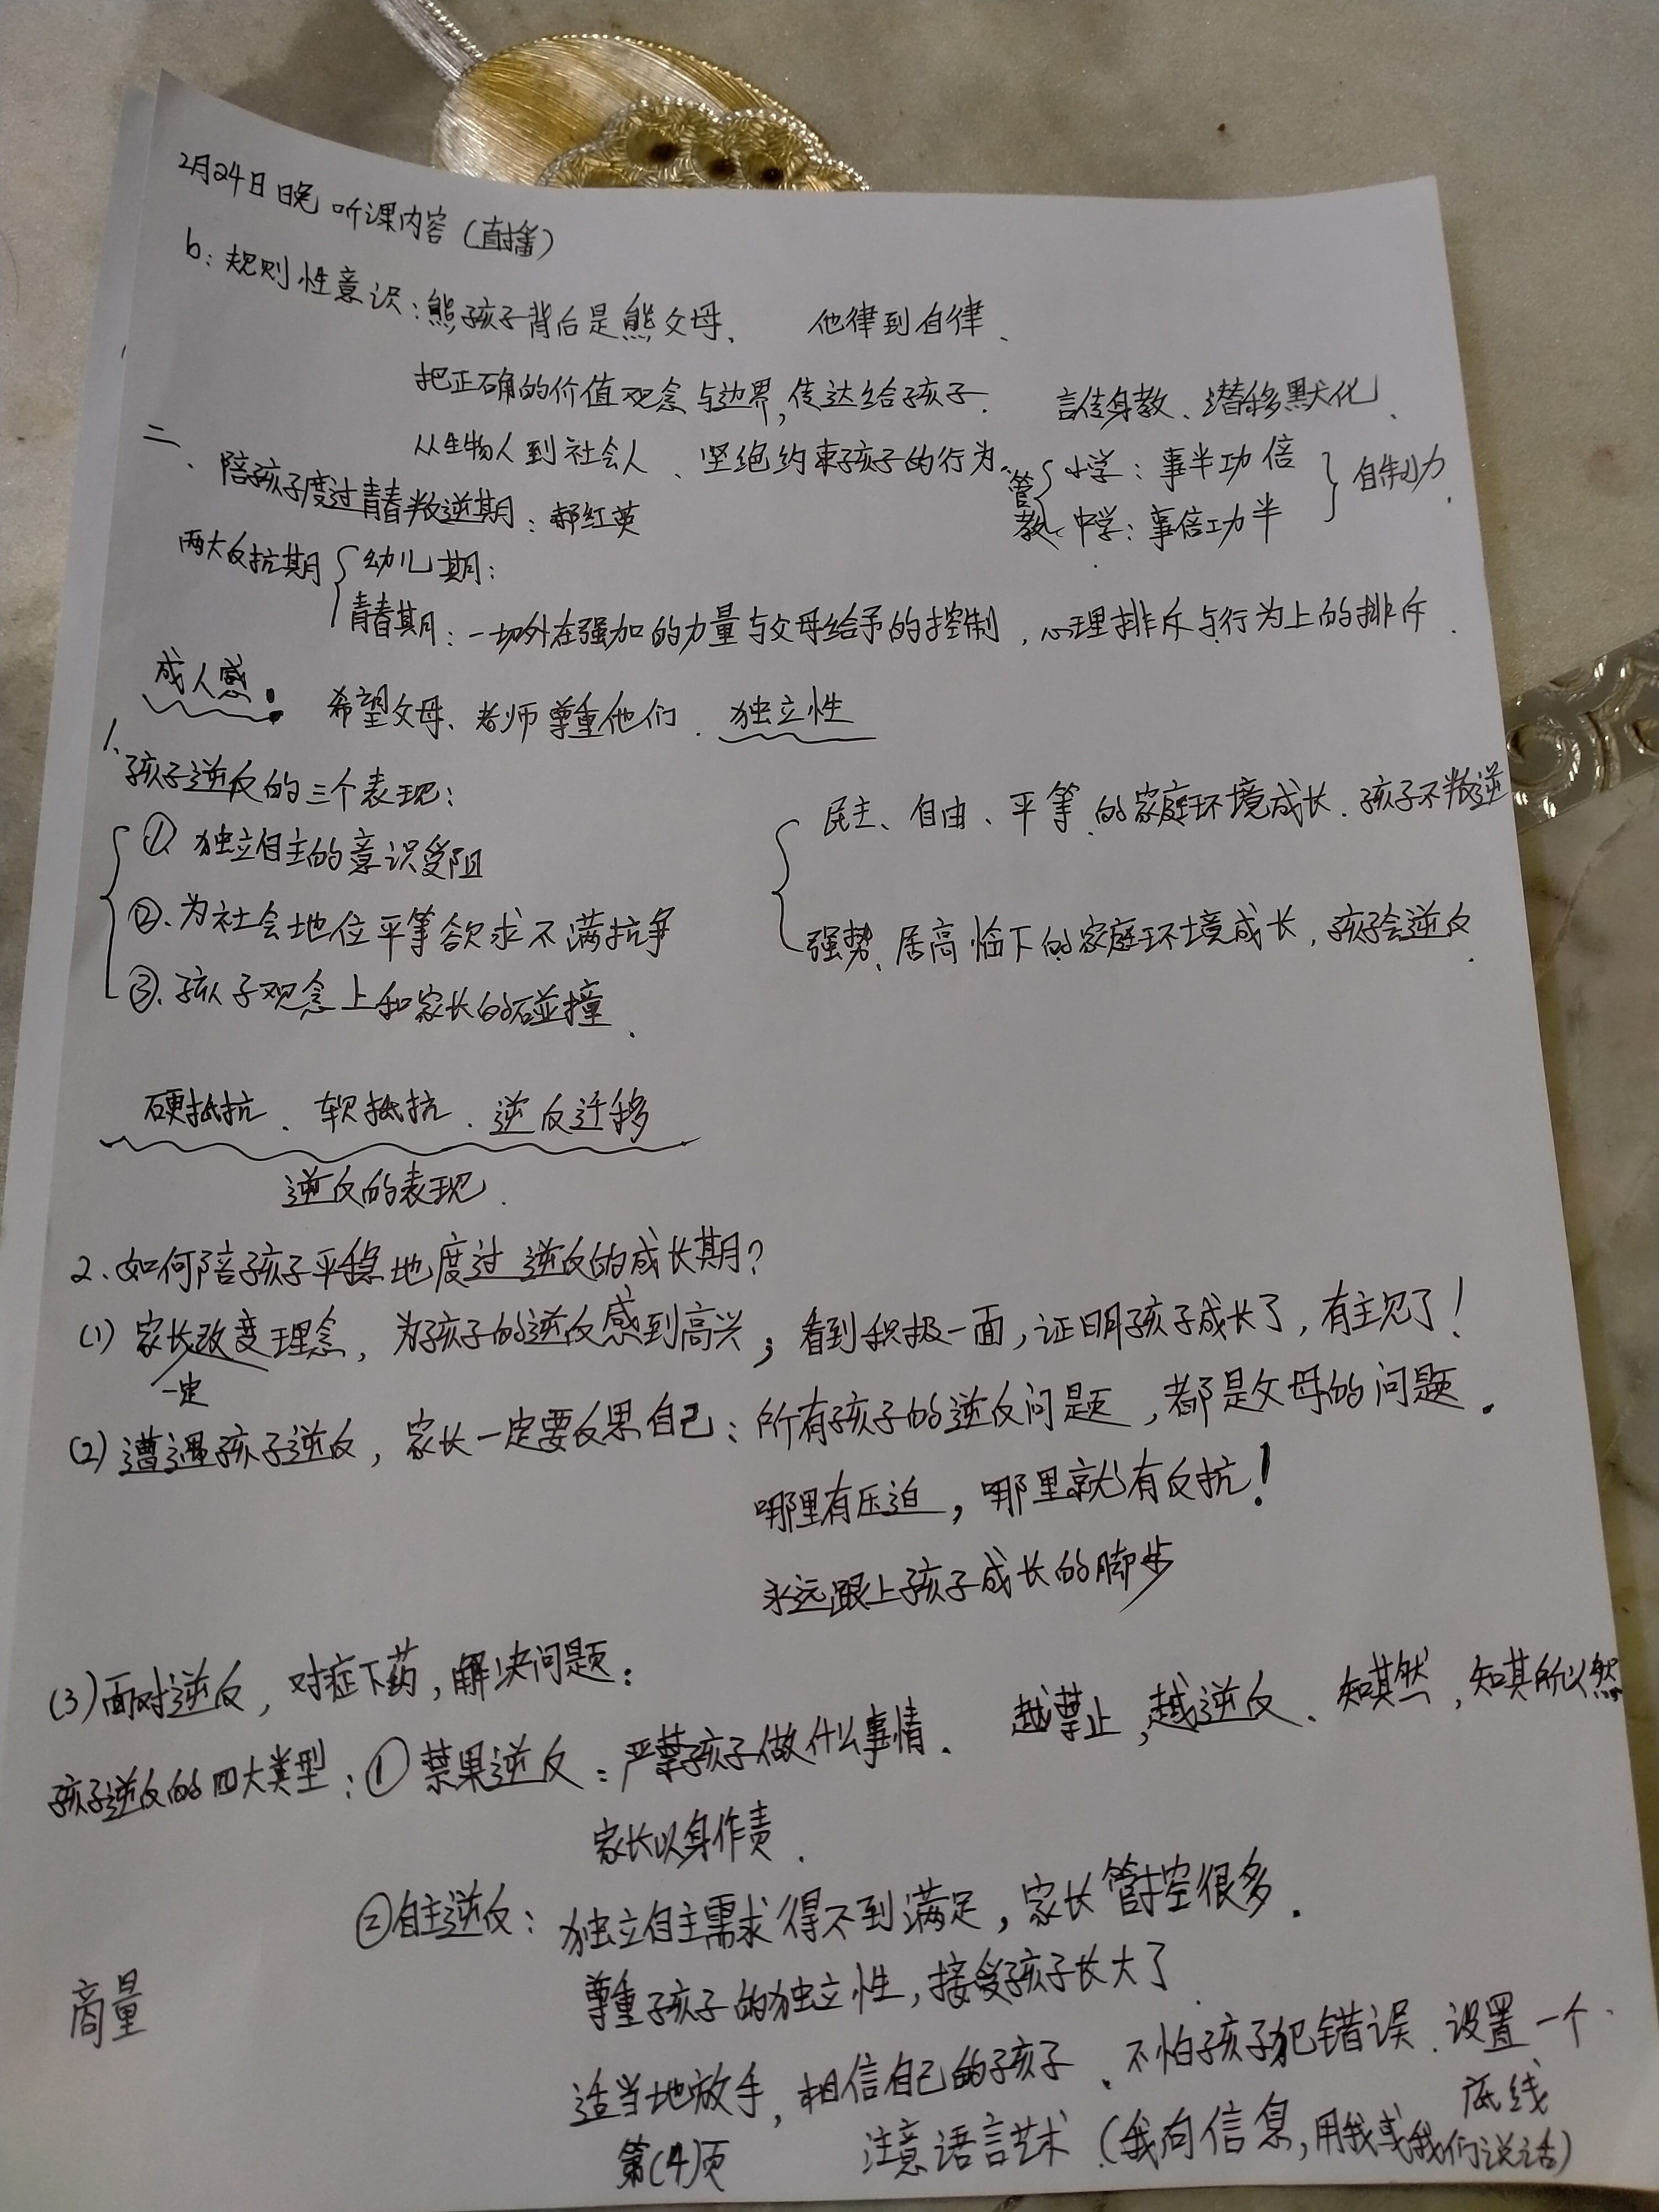 2月24日晚 听课内容（直播）
b：规则性意识：熊孩子背后是熊父母、 他律到自律、
把正确的价值观念与边界，传达给孩子. 言传身教、潜移默化、
从生物人到社会人、坚绝约束孩子的行为. 管教 { 小学：事半功倍 } 自制力.
中学：事倍功半
二、陪孩子度过青春叛逆期：郝红英
两大反抗期 { 幼儿期：
青春期：一切外在强加的力量与父母给予的控制，心理排斥与行为上的排斥.
成人感： 希望父母、老师尊重他们. 独立性
1、孩子逆反的三个表现：
① 独立自主的意识受阻
②、为社会地位平等欲求不满抗争
③、孩子观念上和家长的碰撞.
民主、自由、平等、的家庭环境成长. 孩子不叛逆
强势、居高临下的家庭环境成长，孩子会逆反.
硬抵抗、软抵抗、逆反迁移
逆反的表现.
2、如何陪孩子平稳地度过逆反的成长期？
(1) 家长一定改变理念，为孩子的逆反感到高兴；看到积极一面，证明孩子成长了，有主见了！
(2) 遭遇孩子逆反，家长一定要反思自己：所有孩子的逆反问题，都是父母的问题.
哪里有压迫，哪里就有反抗！
永远跟上孩子成长的脚步
(3) 面对逆反，对症下药，解决问题：
孩子逆反的四大类型：① 禁果逆反：严禁孩子做什么事情. 越禁止，越逆反、知其然，知其所以然
家长以身作责.
②自主逆反：独立自主需求得不到满足，家长管控很多.
尊重孩子的独立性，接受孩子长大了.
商量
适当地放手，相信自己的孩子、不怕孩子犯错误. 设置一个底线
注意语言艺术（我向信息，用我或我们说话）
第(4)页